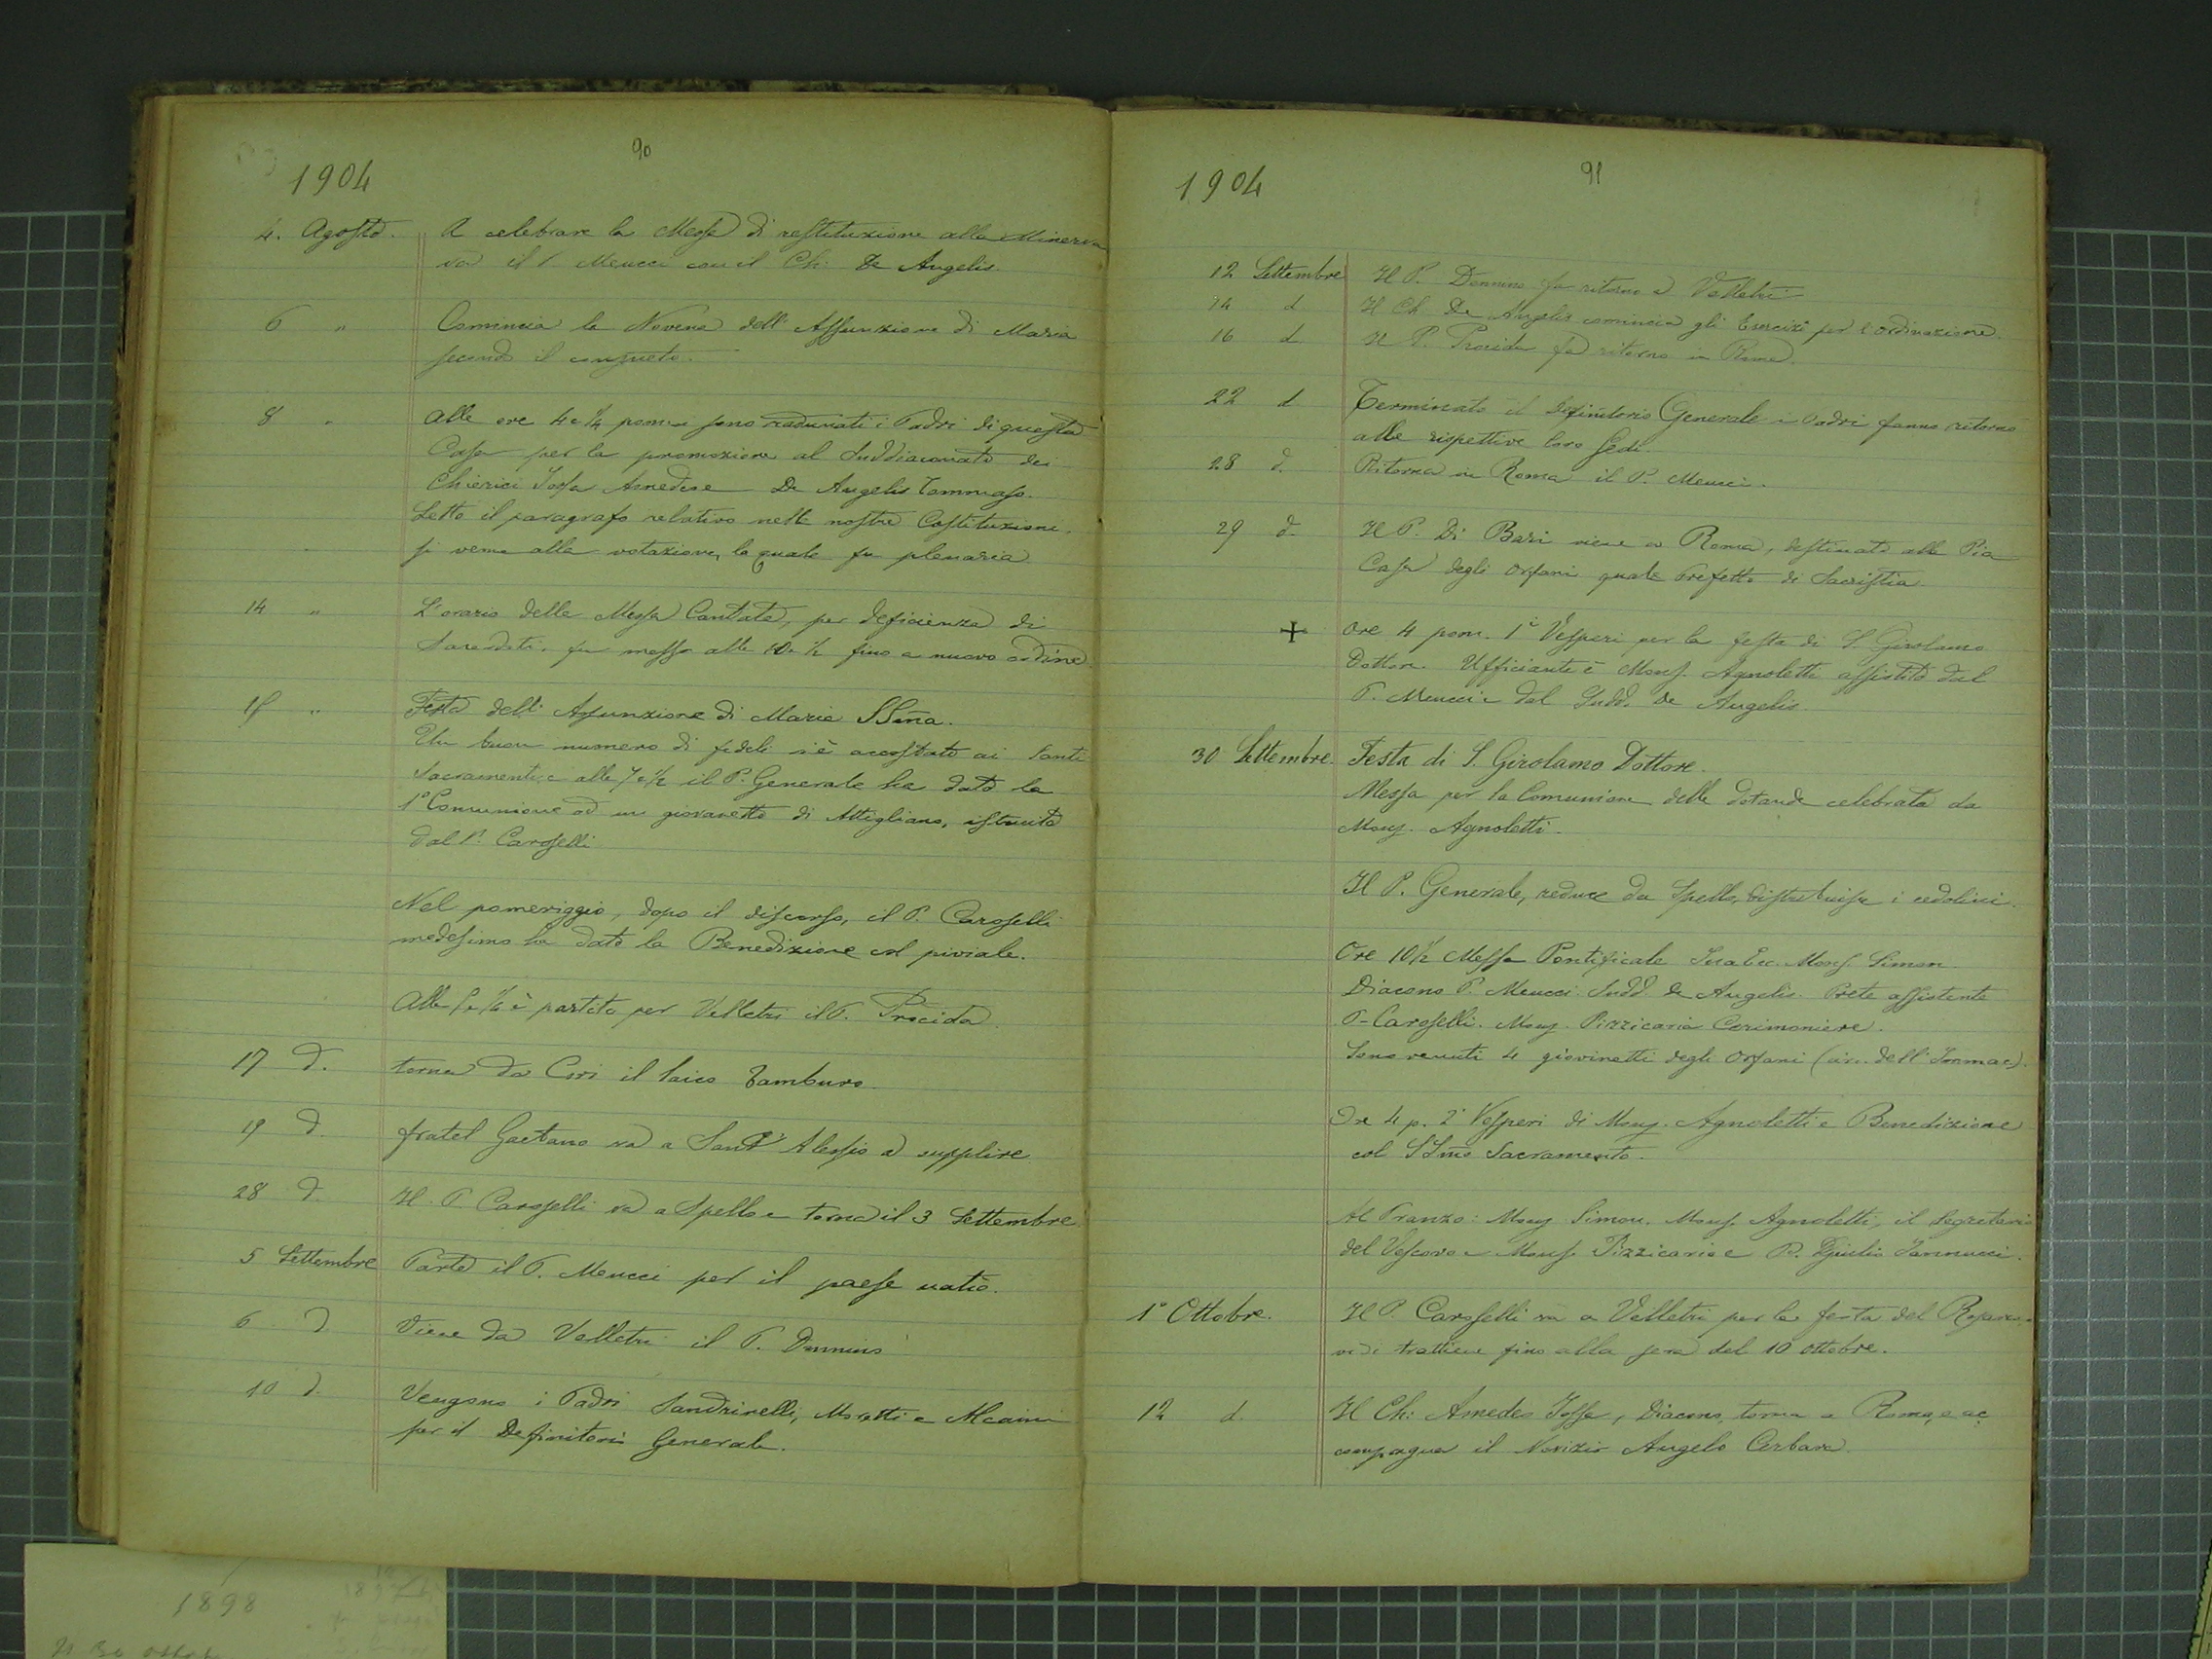 90
1904
4. Agosto. A celebrare la Messa di restituzione alla Minerva
va il P. Meucci con il Ch: De Angelis.
6 " Comincia la Novena dell'Assunzione di Maria
secondo il consueto.
8 " Alle ore 4 e ¼ pom. sono radunati i Padri di questa
Casa per la promozione al Suddiaconato dei
Chierici Iossa Amedeo e De Angelis Tommaso.
Letto il paragrafo relativo nelle nostre Costituzioni,
si venne alla votazione, la quale fu plenaria.
14 " L'orario della Messa Cantata, per deficienza di
Sacerdoti, fu messo alle 10 e ½ fino a nuovo ordine.
15 " Festa dell'Assunzione di Maria SSma.
Un buon numero di fedeli s'è accostato ai Santi
Sacramenti, e alle 7 e ½ il P. Generale ha dato la
1ª Comunione ad un giovanetto di Attigliano, istruito
dal P. Caroselli
Nel pomeriggio, dopo il discorso, il P. Caroselli
medesimo ha dato la Benedizione col piviale.
Alle è partito per Velletri il P. Procida.
17 d. torna da Cori il laico Tamburo.
19 d. fratel Gaetano va a Sant'Alessio a supplire.
28 d. Il P. Caroselli va a Spello e torna il 3 Settembre.
5 Settembre Parte il P. Meucci per il paese natio.
6 d. Viene da Velletri il P. Dennino
10 d. Vengono i Padri Sandrinelli, Moretti e Alcaini
per il Definitorio Generale.
91
1904
12 Settembre Il P. Dennino fa ritorno a Velletri
14 d Il Ch. De Angelis comincia gli Esercizi per l'ordinazione.
16 d Il P. Procida fa ritorno in Roma.
22 d Terminato il Definitorio Generale i Padri fanno ritorno
alle rispettive loro Sedi.
28 d. Ritorna in Roma il P. Meucci.
29 d. Il P. Di Bari viene a Roma, destinato alla Pia
Casa degli Orfani quale Prefetto di Sacristia.
+ Ore 4 pom. 1i Vesperi per la festa di S. Girolamo
Dottore. Ufficiante è Mons. Agnoletti assistito dal
P. Meucci e dal Sudd. De Angelis.
30 Settembre. Festa di S. Girolamo Dottore.
Messa per la Comunione delle dotande celebrata da
Mons. Agnoletti.
Il P. Generale, reduce da Spello, distribuisce i cedolini.
Ore 10½ Messa Pontificale Sua Ecc. Mons. Simon
Diacono P. Meucci Sudd. De Angelis. Prete assistente
P. Caroselli. Mons. Pizzicaria Cerimoniere.
Sono venuti 4 giovinetti degli Orfani
Ore 4 p. 2i Vesperi di Mons. Agnoletti e Benedizione
col SSmo Sacramento.
Al Pranzo: Mons Simon. Mons. Agnoletti, il Segretario
del Vescovo e Mons. Pizzicaria e D. Giulio Iannucci.
1° Ottobre. Il P. Caroselli va a Velletri per la festa del Rosario e
vi si trattiene fino alla sera del 10 ottobre.
12 d. Il Ch: Amedeo Iossa, Diacono, torna a Roma, e ac
compagna il Novizio Angelo Cerbara.
1898